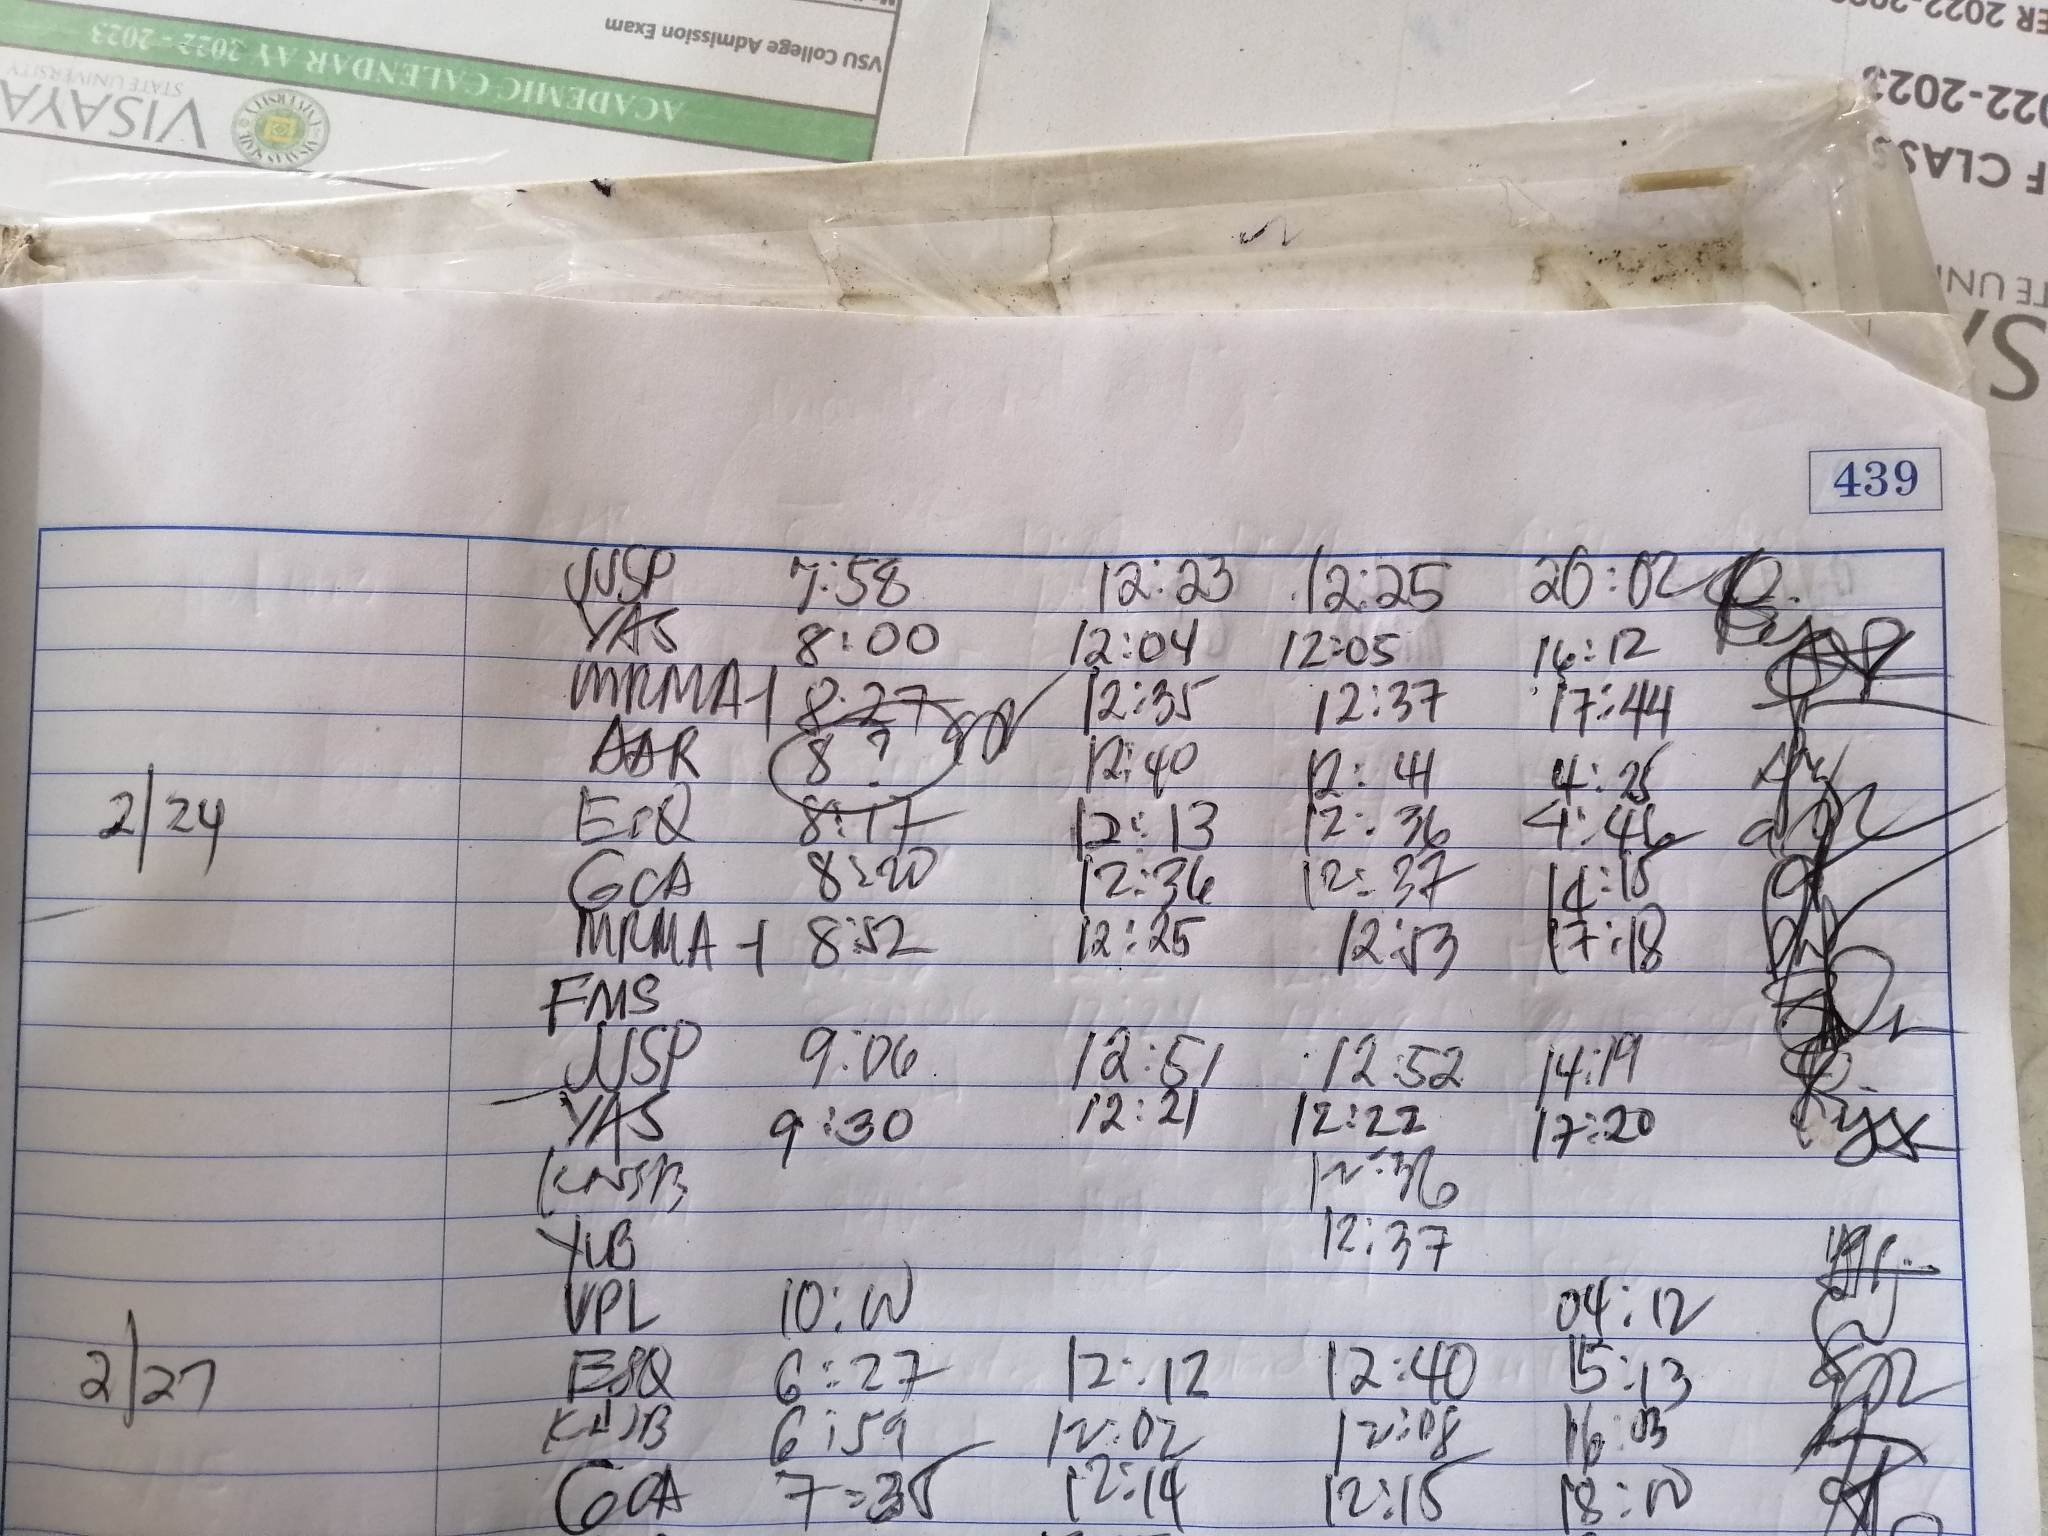 VSU College Admission Exam
ACADEMIC CALENDAR AY 2022 - 2023
VISAYA
STATE UNIVERSITY
2022-2023
F CLASS
439
JJSP 7:58 12:23 12:25 20:02
YAS 8:00 12:04 12:05 16:12
MRMA-1 8:27 12:35 12:37 17:44
AAR 8 ? 12:40 12:41 4:25
2/24 8:17 12:13 12:36 4:46
GCA 8:20 12:36 12:37 14:15
MRMA-1 8:52 12:25 12:53 17:18
FMS
JJSP 9:06 12:51 12:52 14:19
YAS 9:30 12:21 12:22 17:20
12:36
YLB 12:37
VPL 10:00 04:12
2/27 ESQ 6:27 12:12 12:40 15:13
6:59 12:02 12:08 16:03
GCA 7:35 12:14 12:15 18:00